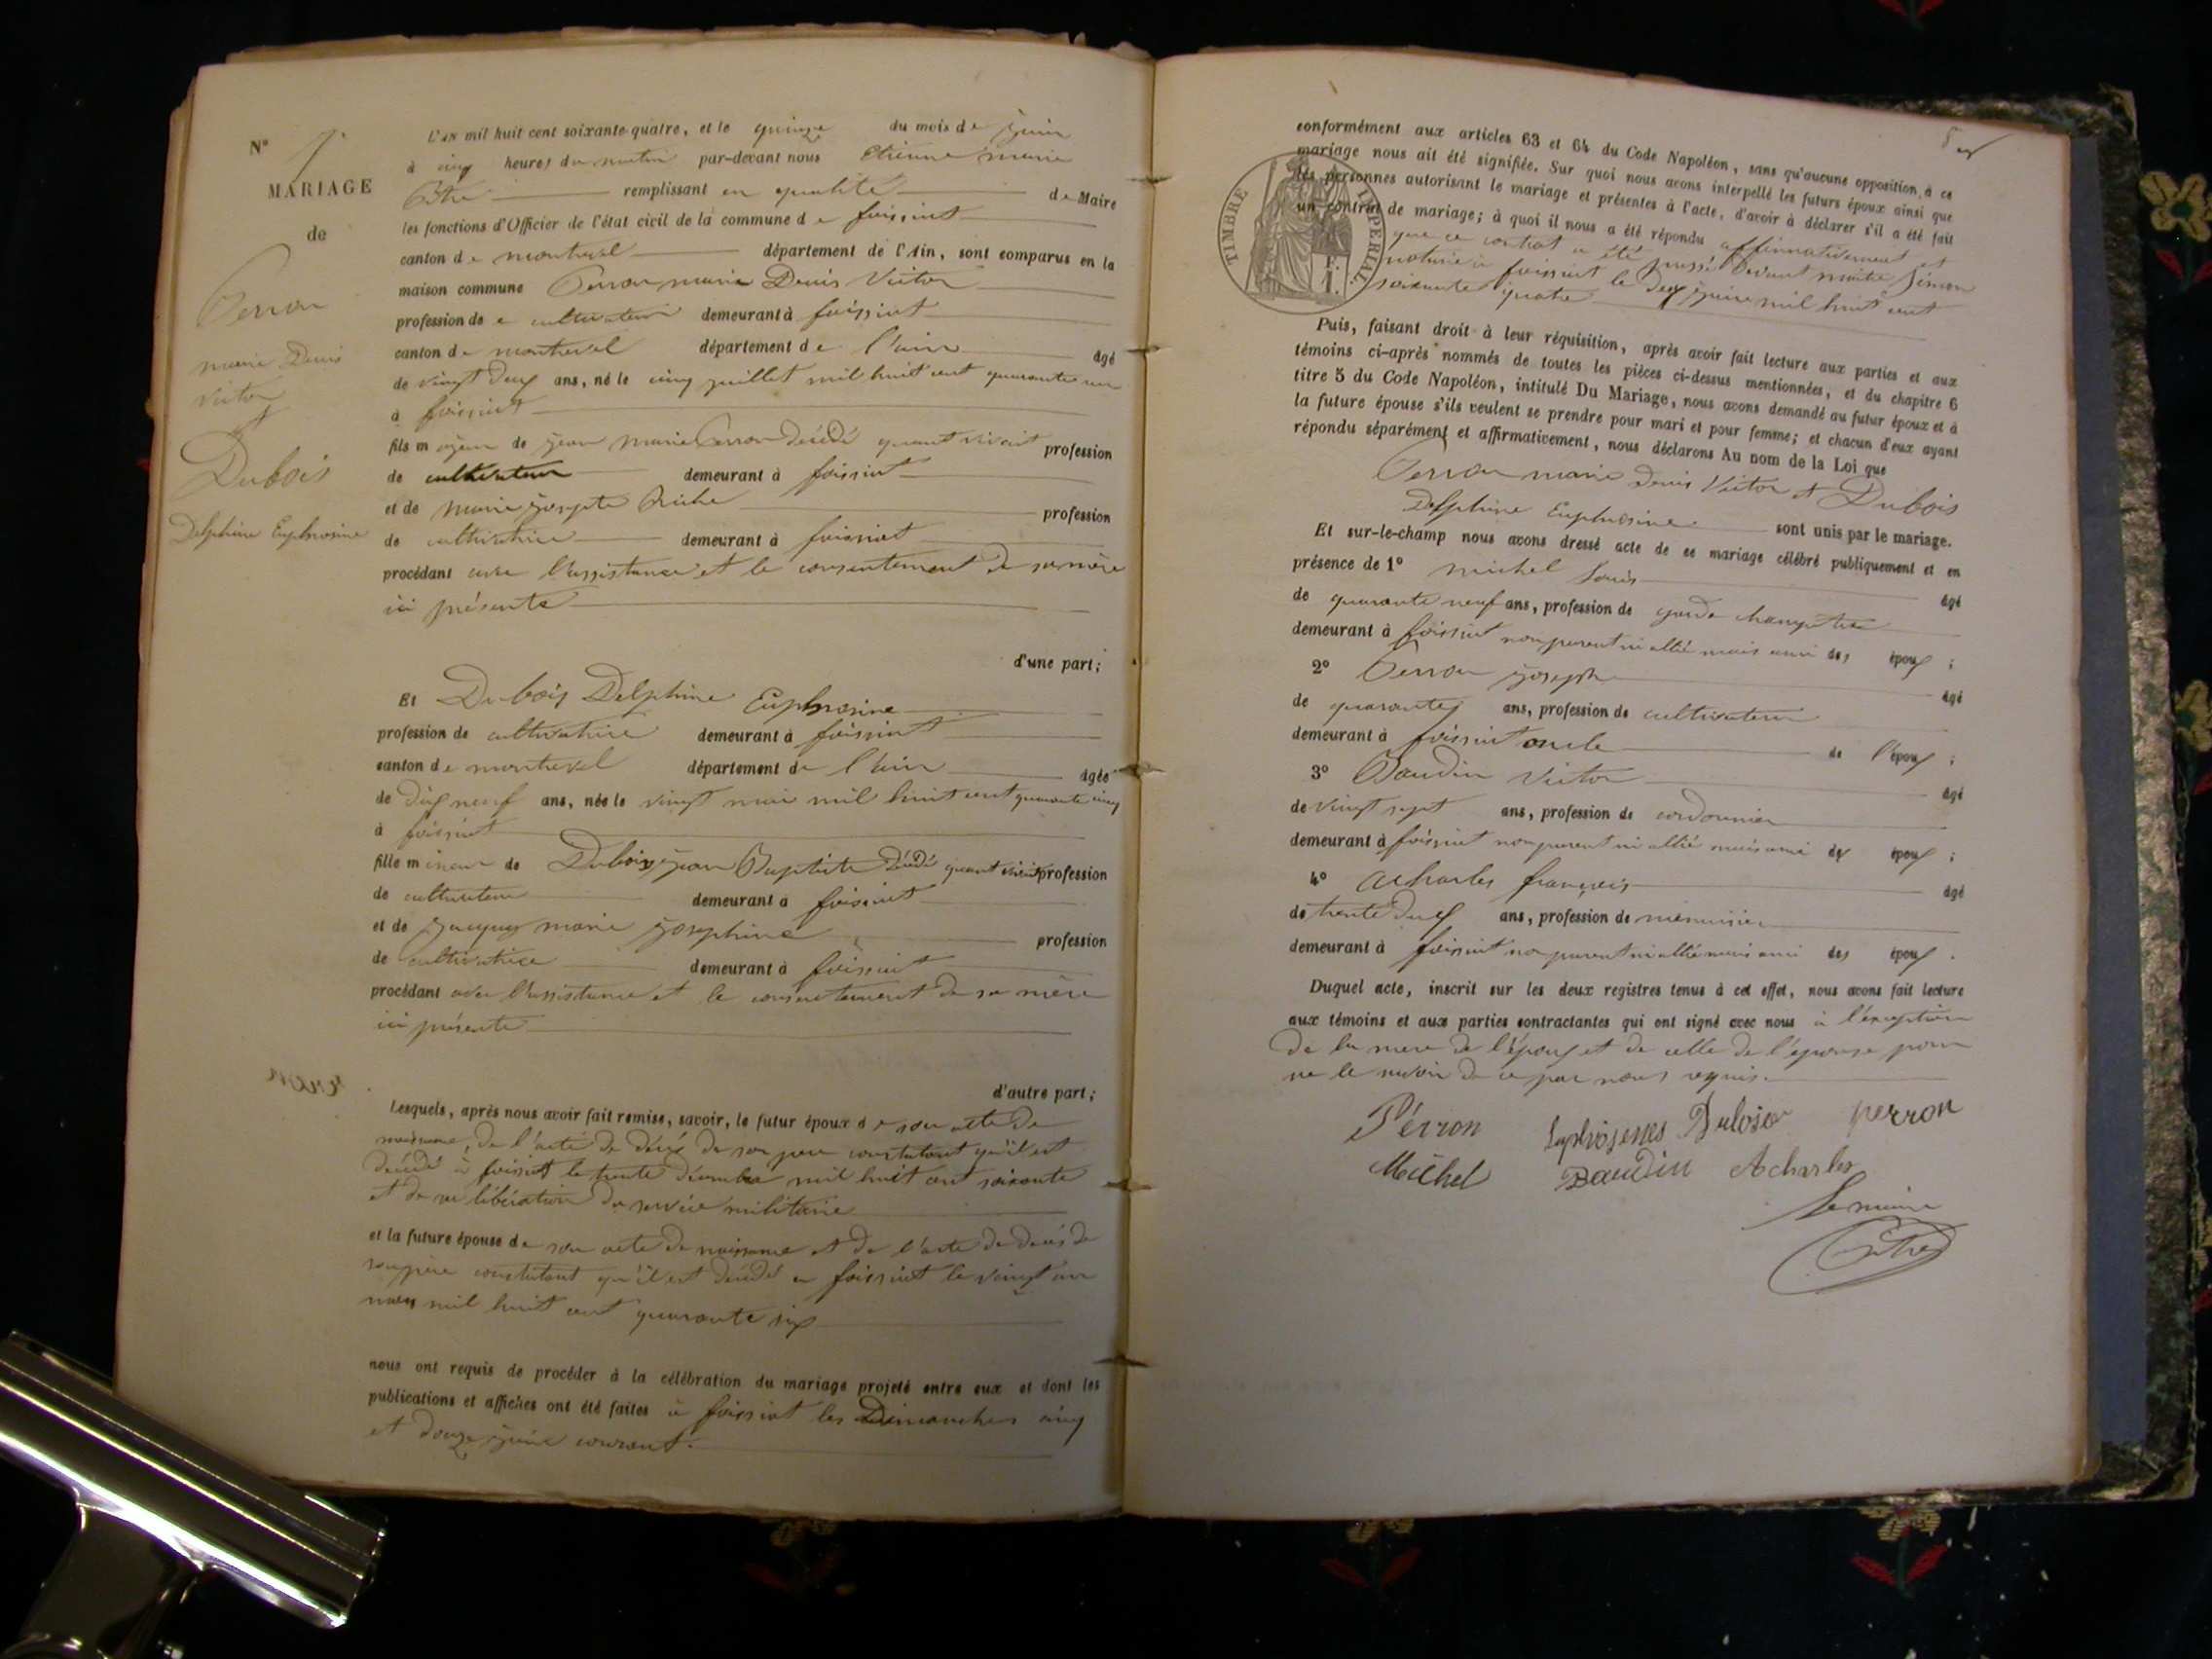 Nº 7
MARIAGE
de
Perron
marie Denis
Victor
et
Dubois
Delphine Euphrosine
L'an mil huit cent soixante-quatre, et le quinze du mois de juin
à cinq heures du matin par-devant nous Etienne marie
remplissant en qualité de Maire
les fonctions d'Officier de l'état civil de la commune de foissiat
canton de montrevel département de l'Ain, sont comparus en la
maison commune Perron marie Denis Victor
profession de cultivateur demeurant à foissiat
canton de montrevel département de l'ain âgé
de vingt deux ans, né le cinq juillet mil huit cent quarante un
à foissiat
fils majeur de jean marie Perron décédé quant vivait profession
de cultivateur demeurant à foissiat
et de marie josepte profession
de cultivatrice demeurant à foissiat
procédant avec l'assistance et le consentement de sa mère
ici présente
d'une part;
Et Dubois Delphine Euphrosine
profession de cultivatrice demeurant à foissiat
canton de montrevel département de l'ain âgée
de dix neuf ans, née le vingt mai mil huit cent quarante cinq
à foissiat
fille mineur de Dubois jean Baptiste décédé quant vivait profession
de cultivateur demeurant à foissiat
et de marie josephine profession
de cultivatrice demeurant à foissiat
procédant avec l'assistance et le consentement de sa mère
ici présente
d'autre part;
Lesquels, après nous avoir fait remise, savoir, le futur époux de son acte de
naissance, de l'acte de décés de son pere constatant qu'il est
décédé à foissiat le trente décembre mil huit cent soixante
et de sa libération du service militaire
et la future épouse de son acte de naissance et de l'acte de décés de
son père constatant qu'il est décédé a foissiat le vingt un
mars mil huit cent quarante six
nous ont requis de procéder à la célébration du mariage projeté entre eux et dont les
publications et affiches ont été faites à foissiat les Dimanches cinq
et douze juin courant.
conformément aux articles 63 et 64 du Code Napoléon, sans qu'aucune opposition à ce
mariage nous ait été signifiée. Sur quoi nous avons interpellé les futurs époux ainsi que
les personnes autorisant le mariage et présentes à l'acte, d'avoir à déclarer s'il a été fait
un contrat de mariage; à quoi il nous a été répondu affirmativement et
que ce contrat a été passé devant maitre Simon
notaire à foissiat le deux juin mil huit cent
soixante quatre
TIMBRE IMPERIAL
F.
1.
Puis, faisant droit à leur réquisition, après avoir fait lecture aux parties et aux
témoins ci-après nommés de toutes les pièces ci-dessus mentionnées, et du chapitre 6
titre 5 du Code Napoléon, intitulé Du Mariage, nous avons demandé au futur époux et à
la future épouse s'ils veulent se prendre pour mari et pour femme; et chacun d'eux ayant
répondu séparément et affirmativement, nous déclarons Au nom de la Loi que
Perron marie Denis Victor et Dubois
Delphine Euphrosine sont unis par le mariage.
Et sur-le-champ nous avons dressé acte de ce mariage célébré publiquement et en
présence de 1º michel Louis âgé
de quarante neuf ans, profession de garde champetre
demeurant à foissiat non parent ni allié mais ami des époux ;
2º Perron joseph âgé
de quarante ans, profession de cultivateur
demeurant à foissiat oncle de l'époux ;
3º Baudin Victor âgé
de vingt sept ans, profession de cordonnier
demeurant à foissiat non parent ni allié mais ami des époux ;
4º Acharles françois âgé
de trente deux ans, profession de menuisier
demeurant à foissiat non parent ni allié mais ami des époux .
Duquel acte, inscrit sur les deux registres tenus à cet effet, nous avons fait lecture
aux témoins et aux parties contractantes qui ont signé avec nous à l'exception
de la mere de l'époux et de celle de l'epouse pour
ne le savoir de ce par nous requis.
Pérron Dubois perron
Michel Baudin Acharles
Le maire